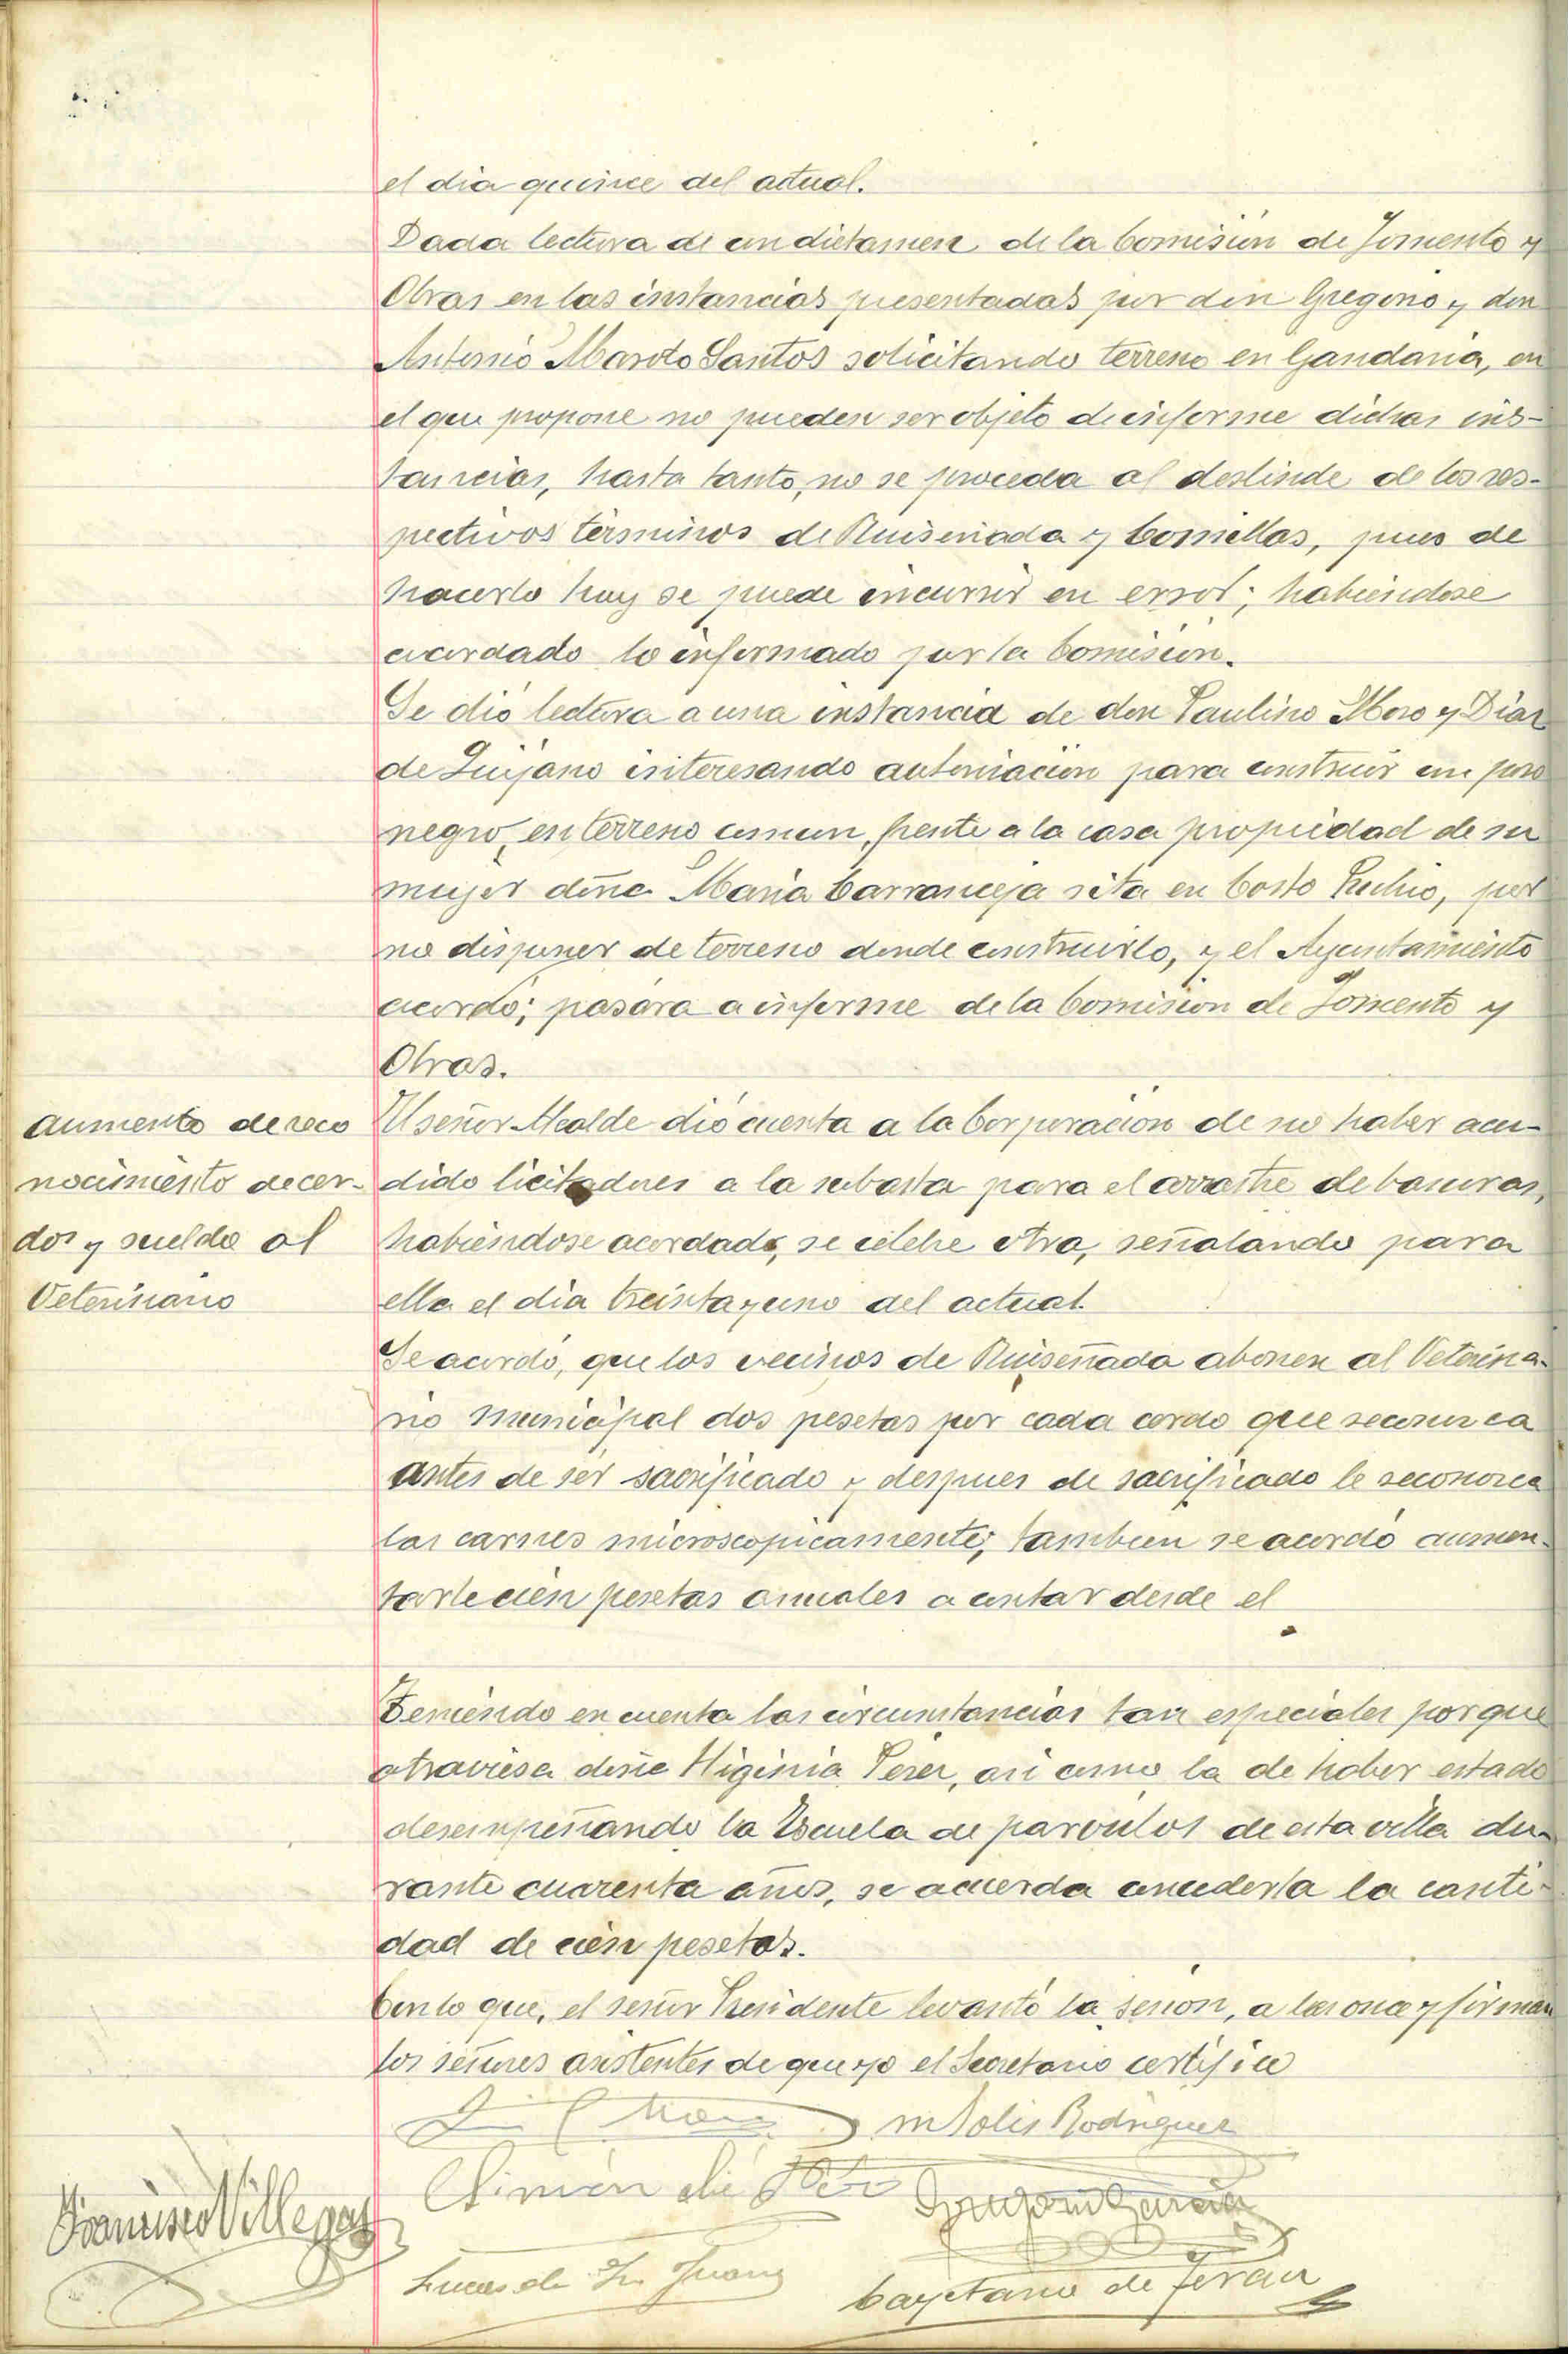 el dia quince del actual.
Dada lectura de un dictamen de la Comisión de Fomento y
Obras en las instancias presentadas por don Gregorio y don
Antonio Maroto Santos solicitando terreno en Gandaria, en
el que propone no pueden ser objeto de informe dichas ins-
tancias, hasta tanto, no se proceda al deslinde de los res-
pectivos términos de Ruiseñada y Comillas, pues de
hacerlo hoy se puede incurrir en error; habiendose
acordado lo informado por la Comision.
Se dió lectura a una instancia de don Paulino Moro y Diaz
de Quijano interesando autorización para construir un pozo
negro, en terreno comun, frente a la casa propiedad de su
mujer doña Maria Carranceja sita en Costo, por
no disponer de terreno donde construirlo, y el Ayuntamiento
acordó; pasara a informe de la Comision de Fomento y
Obras.
Aumento de reco
nocimiento de cer-
dos y sueldo al
Veterinario
El señor Alcalde dió cuenta a la Corporacion de no haber acu-
dido licitadores a la subasta para el arrastre de basuras,
habiéndose acordado, se celebre otra, señalando para
ella el dia treinta y uno del actual.
Se acordó, que los vecinos de Ruiseñada abonen al Veterina-
rio Municipal dos pesetas por cada cerdo que reconozca
antes de ser sacrificado y despues de sacrificado le reconozca
las carnes microscopicamente; tambien se acordó aumen-
tarle cien pesetas anuales a contar desde el
Teniendo en cuenta las circunstancias tan especiales por que
atraviesa doña Higinia Perez, asi como la de haber estado
desempeñando la Escuela de parvulos de esta villa du-
rante cuarenta años, se acuerda concederla la canti-
dad de cien pesetas.
Con lo que, el señor Presidente levantó la sesion, a las once y firman
los señores asistentes de que yo el Secretario certifico
M Solis Rodriguez
Simón de
Garcia
Francisco Villegas
Lucas de Sn Juan
Cayetano de Teran